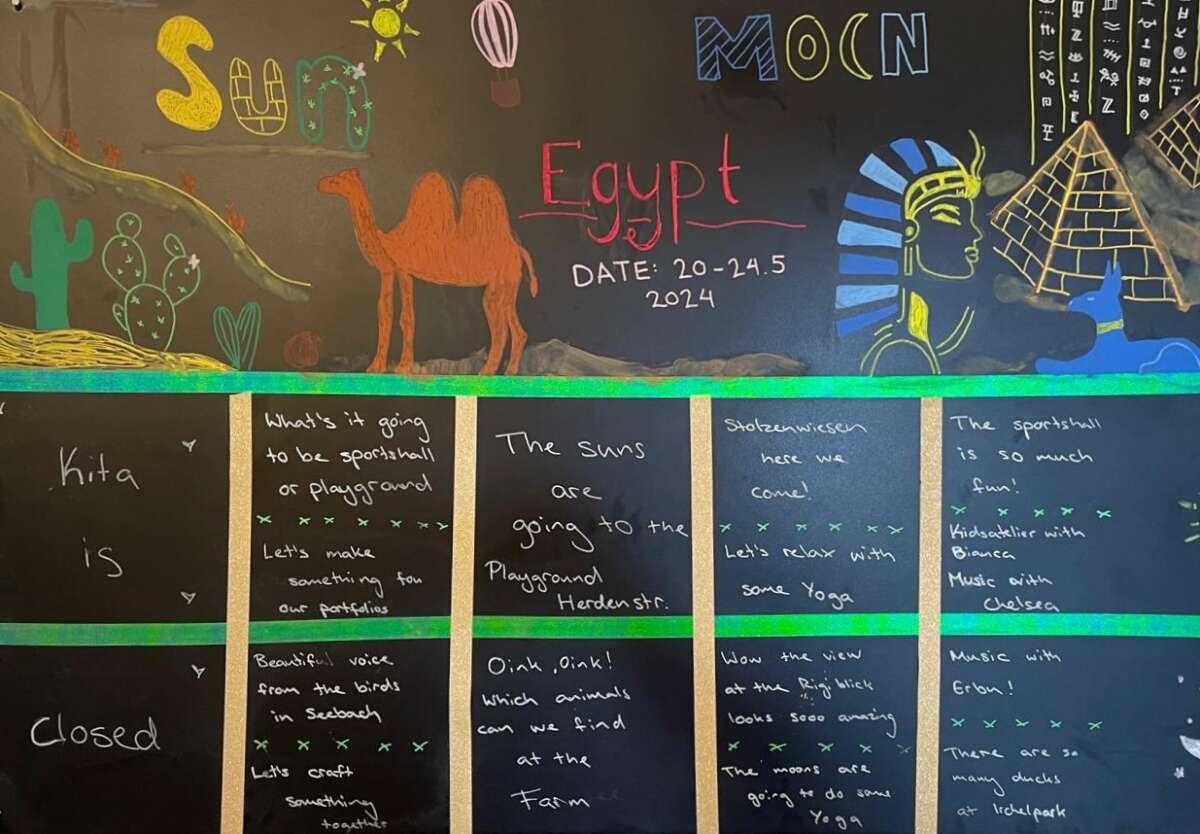 Sun
MOON
Egypt
DATE: 20-24.5
2024
Kita
is
What's it going
to be sportshall
or playground
Let's make
something fou
our portfolios
The suns
are
going to the
Playground
Herdenstr.
Stolzenwiesen
here we
come!
Let's relax with
some Yoga
The sportshall
is so much
fun!
Kidsatelier with
Bianca
Music with
Chelsea
Closed
Beautiful voice
from the birds
in Seebach
Let's craft
something
together
Oink, Oink!
Which animals
can we find
at the
Farm
Wow the view
at the Rigiblick
looks sooo amazing
The moons are
going to do some
Yoga
Music with
There are so
many ducks
at Irchelpark